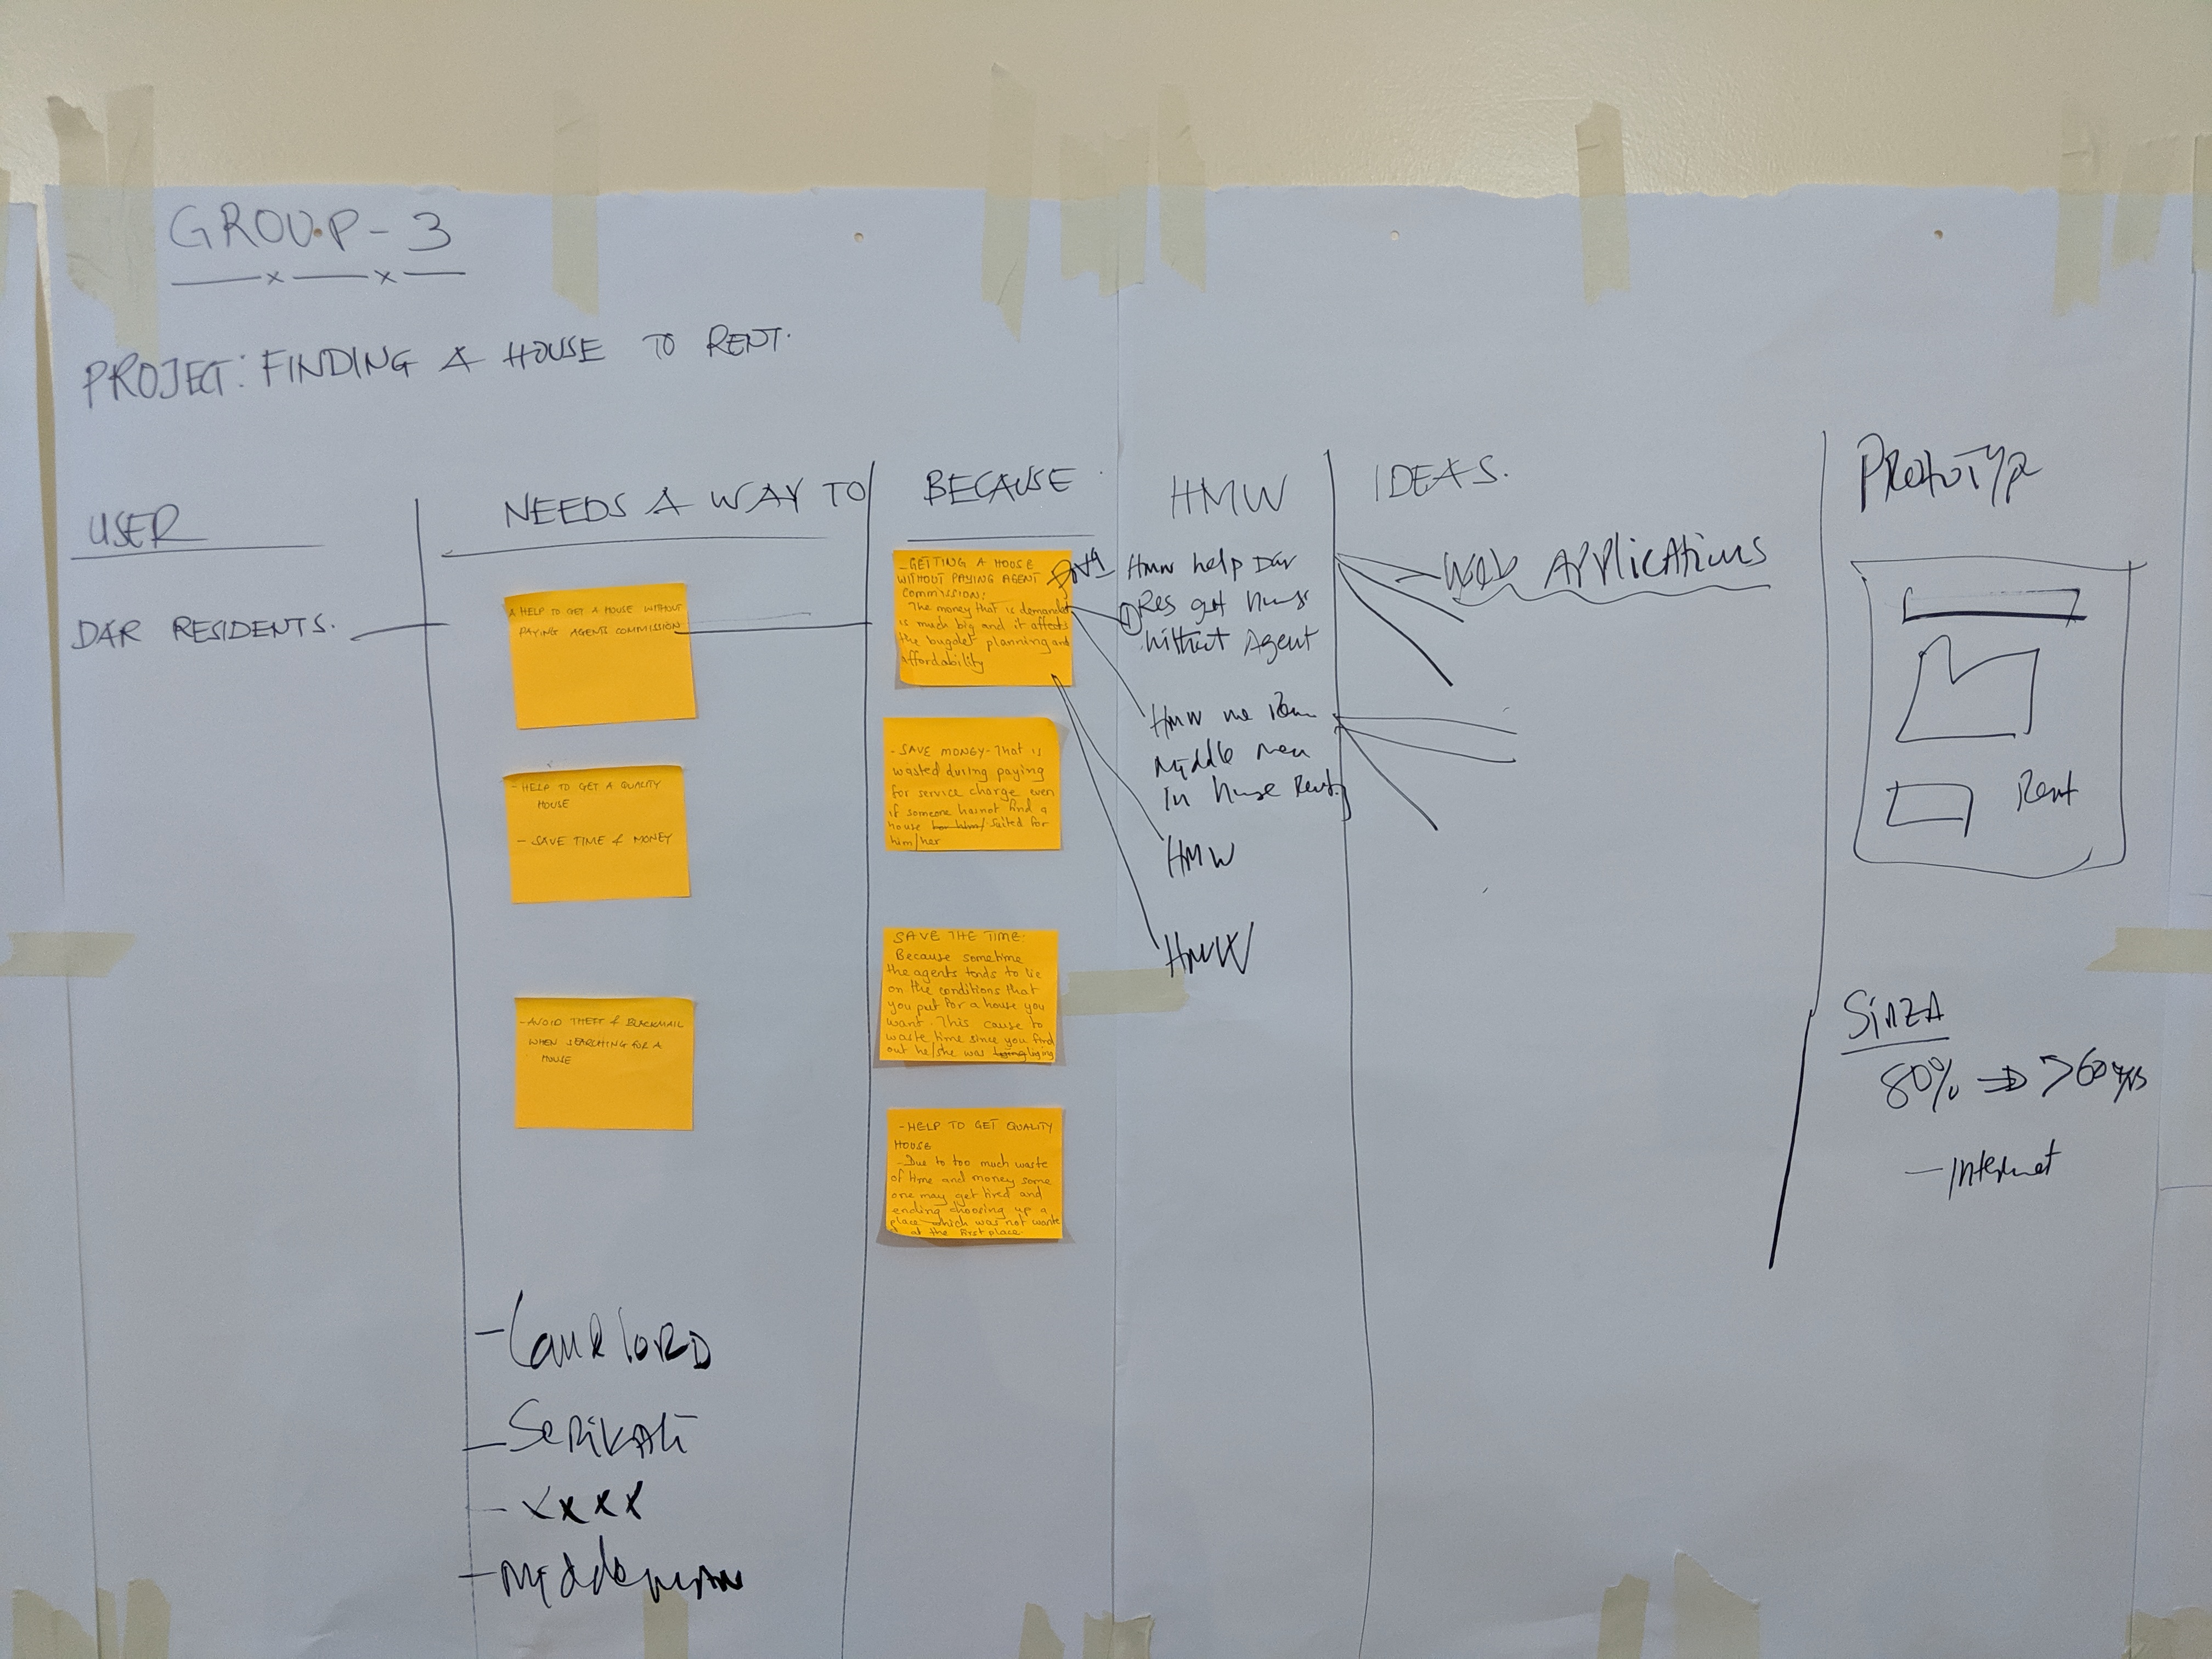 GROUP-3
PROJECT: FINDING A HOUSE TO RENT.
USER
DAR RESIDENTS.
NEEDS A WAY TO
A HELP TO GET A HOUSE WITHOUT
PAYING AGENTS COMMISSION
- HELP TO GET A QUALITY
HOUSE
- SAVE TIME & MONEY
- AVOID THEFT & BLACKMAIL
WHEN SEARCHING FOR A
HOUSE
- Landlord
- SeRikali
- xxxx
- Middleman
BECAUSE
- GETTING A HOUSE
WITHOUT PAYING AGENT
COMMISSION:
The money that is demanded
is much big and it affects
the bugdet planning and
affordability
- SAVE MONEY - That is
wasted during paying
for service charge even
if someone has not find a
house for him/ suited for
him/her
SAVE THE TIME:
Because sometime
the agents tends to lie
on the conditions that
you put for a house you
want. This cause to
waste time since you find
out he/she was liying
- HELP TO GET QUALITY
HOUSE
- Due to too much waste
of time and money some
one may get tired and
ending choosing up a
place which was not wante
at the first place.
HMW
Hmw help Dar
Res get house
without Agent
HMW we
Middle men
In house Rent
HMW
HMW
IDEAS.
Web Applications
Prototype
Rent
SinZA
80% ⇒ >60yrs
- Internet